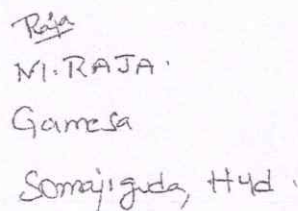 Raja
M. RAJA.
Gamesa
Somajiguda, Hyd.